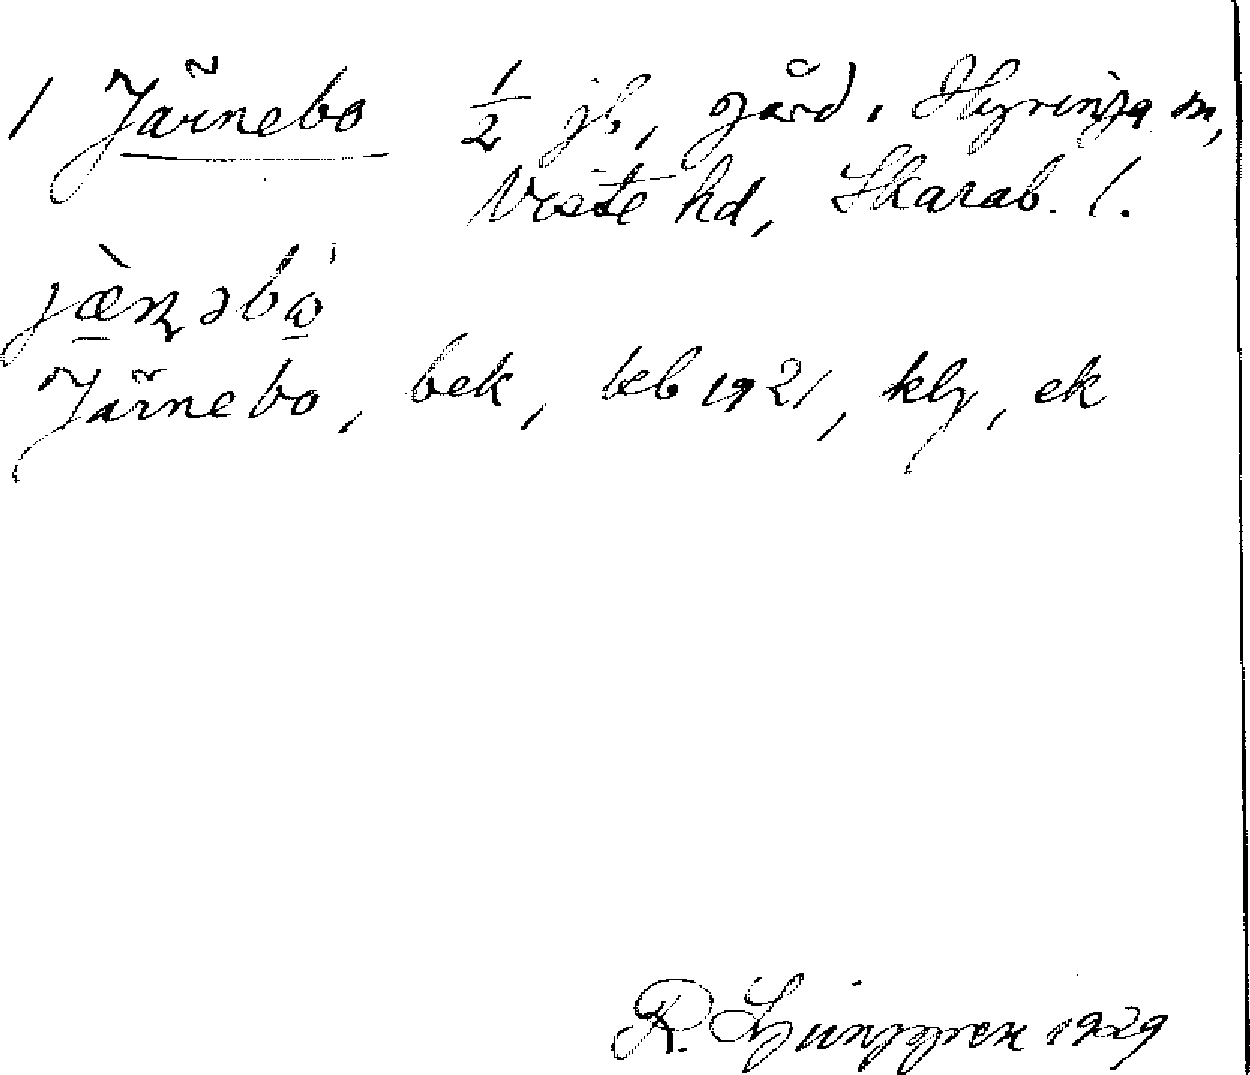 1 Järnebo 1/2 jb, gård, Hyringa sn,
Viste hd, Skarab. l.
Järnebo, bek, beb 1921, kly, ek
R. Ljunggren 1929